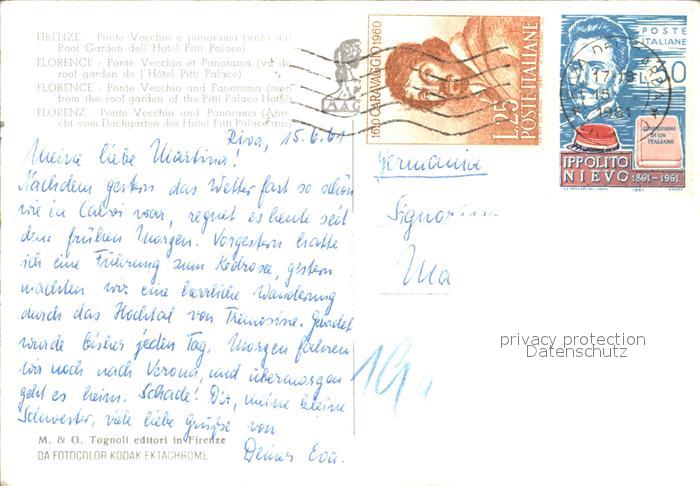 FIRENZE - Ponte Vecchio e panorama (visto dal
Roof Garden dell'Hotel Pitti Palace)
FLORENCE - Ponte Vecchio et Panorama (vu du
roof garden de l'Hôtel Pitti Palace)
FLORENCE - Ponte Vecchio and Panorama (seen
from the roof garden of the Pitti Palace Hotel)
FLORENZ - Ponte Vecchio und Panorama (Ansi
cht vom Dachgarten des Hotel Pitti Palace aus)
MAG
1610 CARAVAGGIO 1960
L.25 POSTE ITALIANE
POSTE
ITALIANE
17-18
15
1961
CONFESSIONI
DI UN
ITALIANO
IPPOLITO
NIEVO 1861-1961
Riva, 15.6.61
Meine liebe Martina!
Nachdem gestern das Wetter fast so schön
wie in Calvi war, regnet es heute seit
dem frühen Morgen. Vorgestern hatte
ich eine Führung zum gestern
machten wir eine herrliche Wanderung
durch das Hochtal von Tremosine. Gebadet
wurde bisher jeden Tag. Morgen fahren
wir noch nach Verona, und übermorgen
geht es heim. Schade! Dir, meine kleine
Schwester, viele liebe Grüße von
Deiner Eva.
Germania
Signorina
Ma
privacy protection
Datenschutz
M. & G. Tognoli editori in Firenze
DA FOTOCOLOR KODAK EKTACHROME